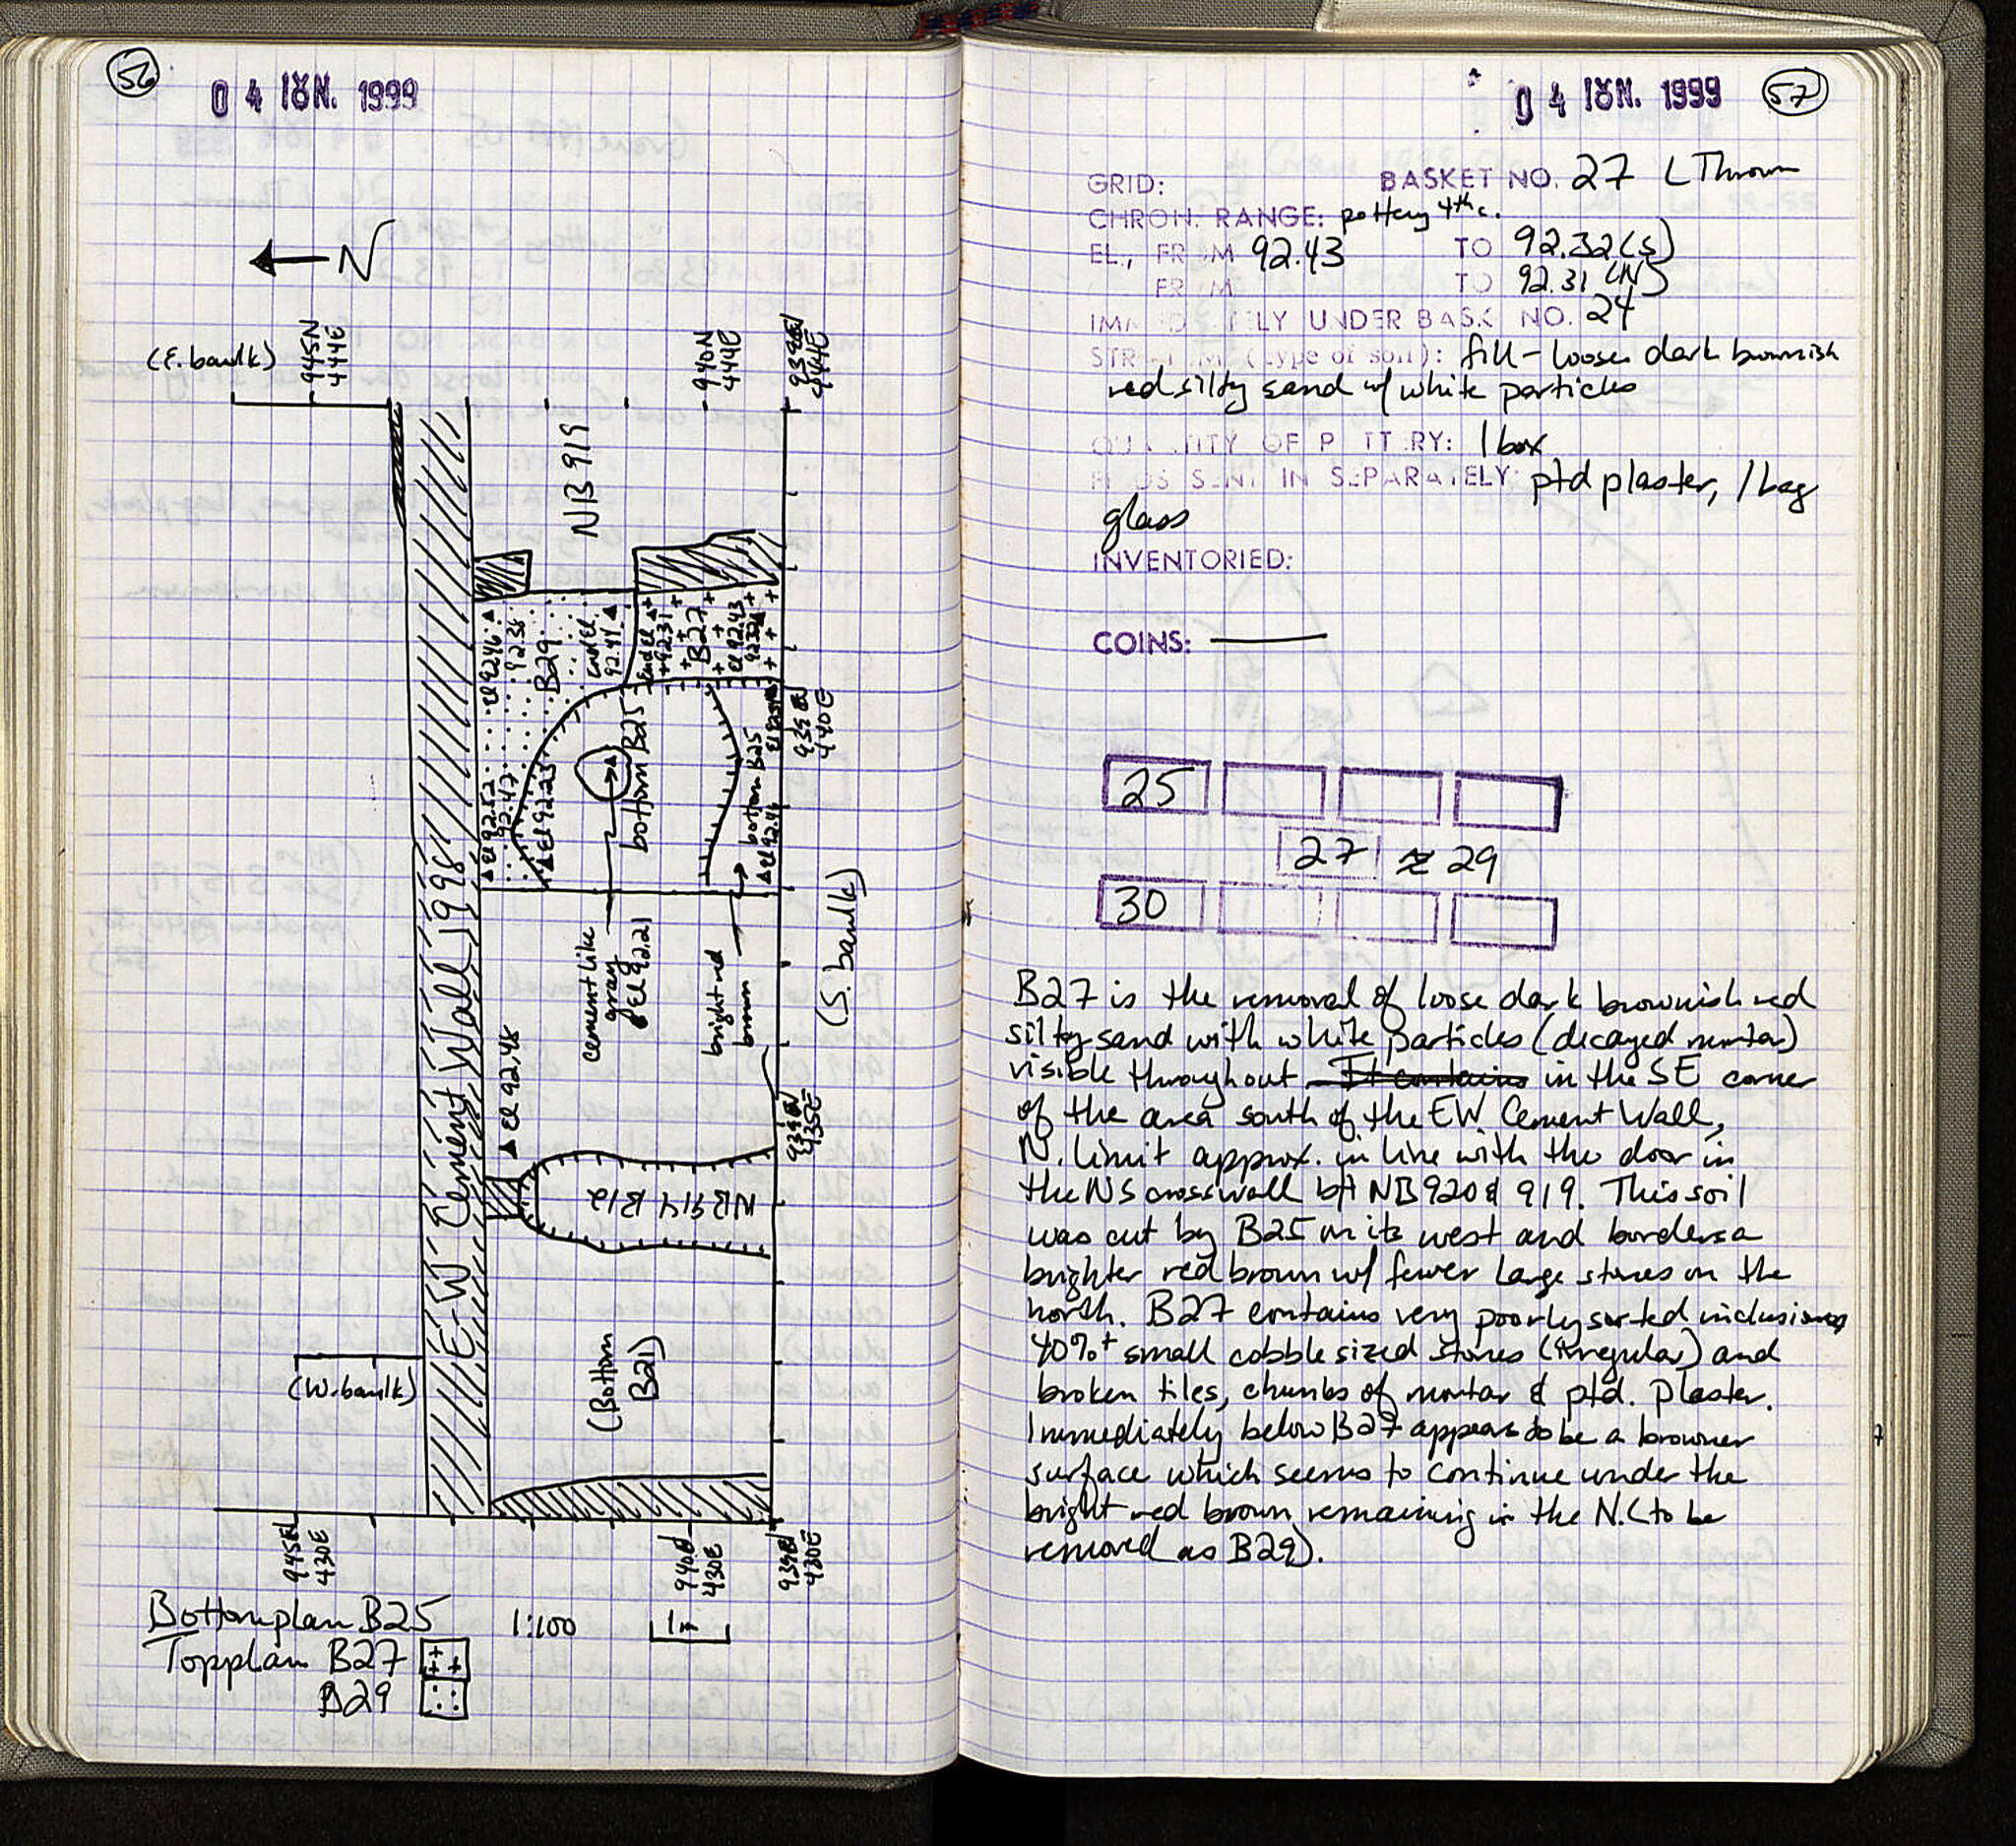 56
04 ΙΟΥΝ. 1999
N
(E. baulk)
945N
444E
940N
444E
939N
444E
NB 919
El 92.46
92.38
B29
End El.
92.41
End El
92.31
B27
El 92.43
92.32
El 92.52
92.47
El 92.23
bottom B25
bottom B25
El 92.44
939N
440E
E-W Cement Wall 998
cementlike
gray
El 92.21
bright red
brown
(S. baulk)
El 92.48
939N
435E
NB 914 B12
(W. baulk)
(Bottom
B21)
945N
430E
940N
430E
939N
430E
Bottomplan B25 1:100 1m
Topplan B27
B29
04 ΙΟΥΝ. 1999
57
GRID: BASKET NO. 27 L Thrown
CHRON. RANGE: pottery 4th c.
EL., FROM 92.43 TO 92.32(S)
FROM TO 92.31 (N)
IMMEDIATELY UNDER BASK. NO. 24
STRATUM (type of soil): fill - loose dark brownish
red silty sand w/ white particles
QUANTITY OF POTTERY: 1 box
FINDS SENT IN SEPARATELY: ptd plaster, 1 bag
glass
INVENTORIED:
COINS: —
25
27 ≈ 29
30
B27 is the removal of loose dark brownish red
silty sand with white particles (decayed mortar)
visible throughout It contains in the SE corner
of the area south of the EW Cement Wall,
N. limit approx. in line with the door in
the NS crosswall bt NB920 & 919. This soil
was cut by B25 on its west and borders a
brighter red brown w/ fewer large stones on the
north. B27 contains very poorly sorted inclusions
40%+ small cobble sized stones (irregular) and
broken tiles, chunks of mortar & ptd. plaster.
Immediately below B27 appears to be a browner
surface which seems to continue under the
bright red brown remaining in the N. (to be
removed as B29).